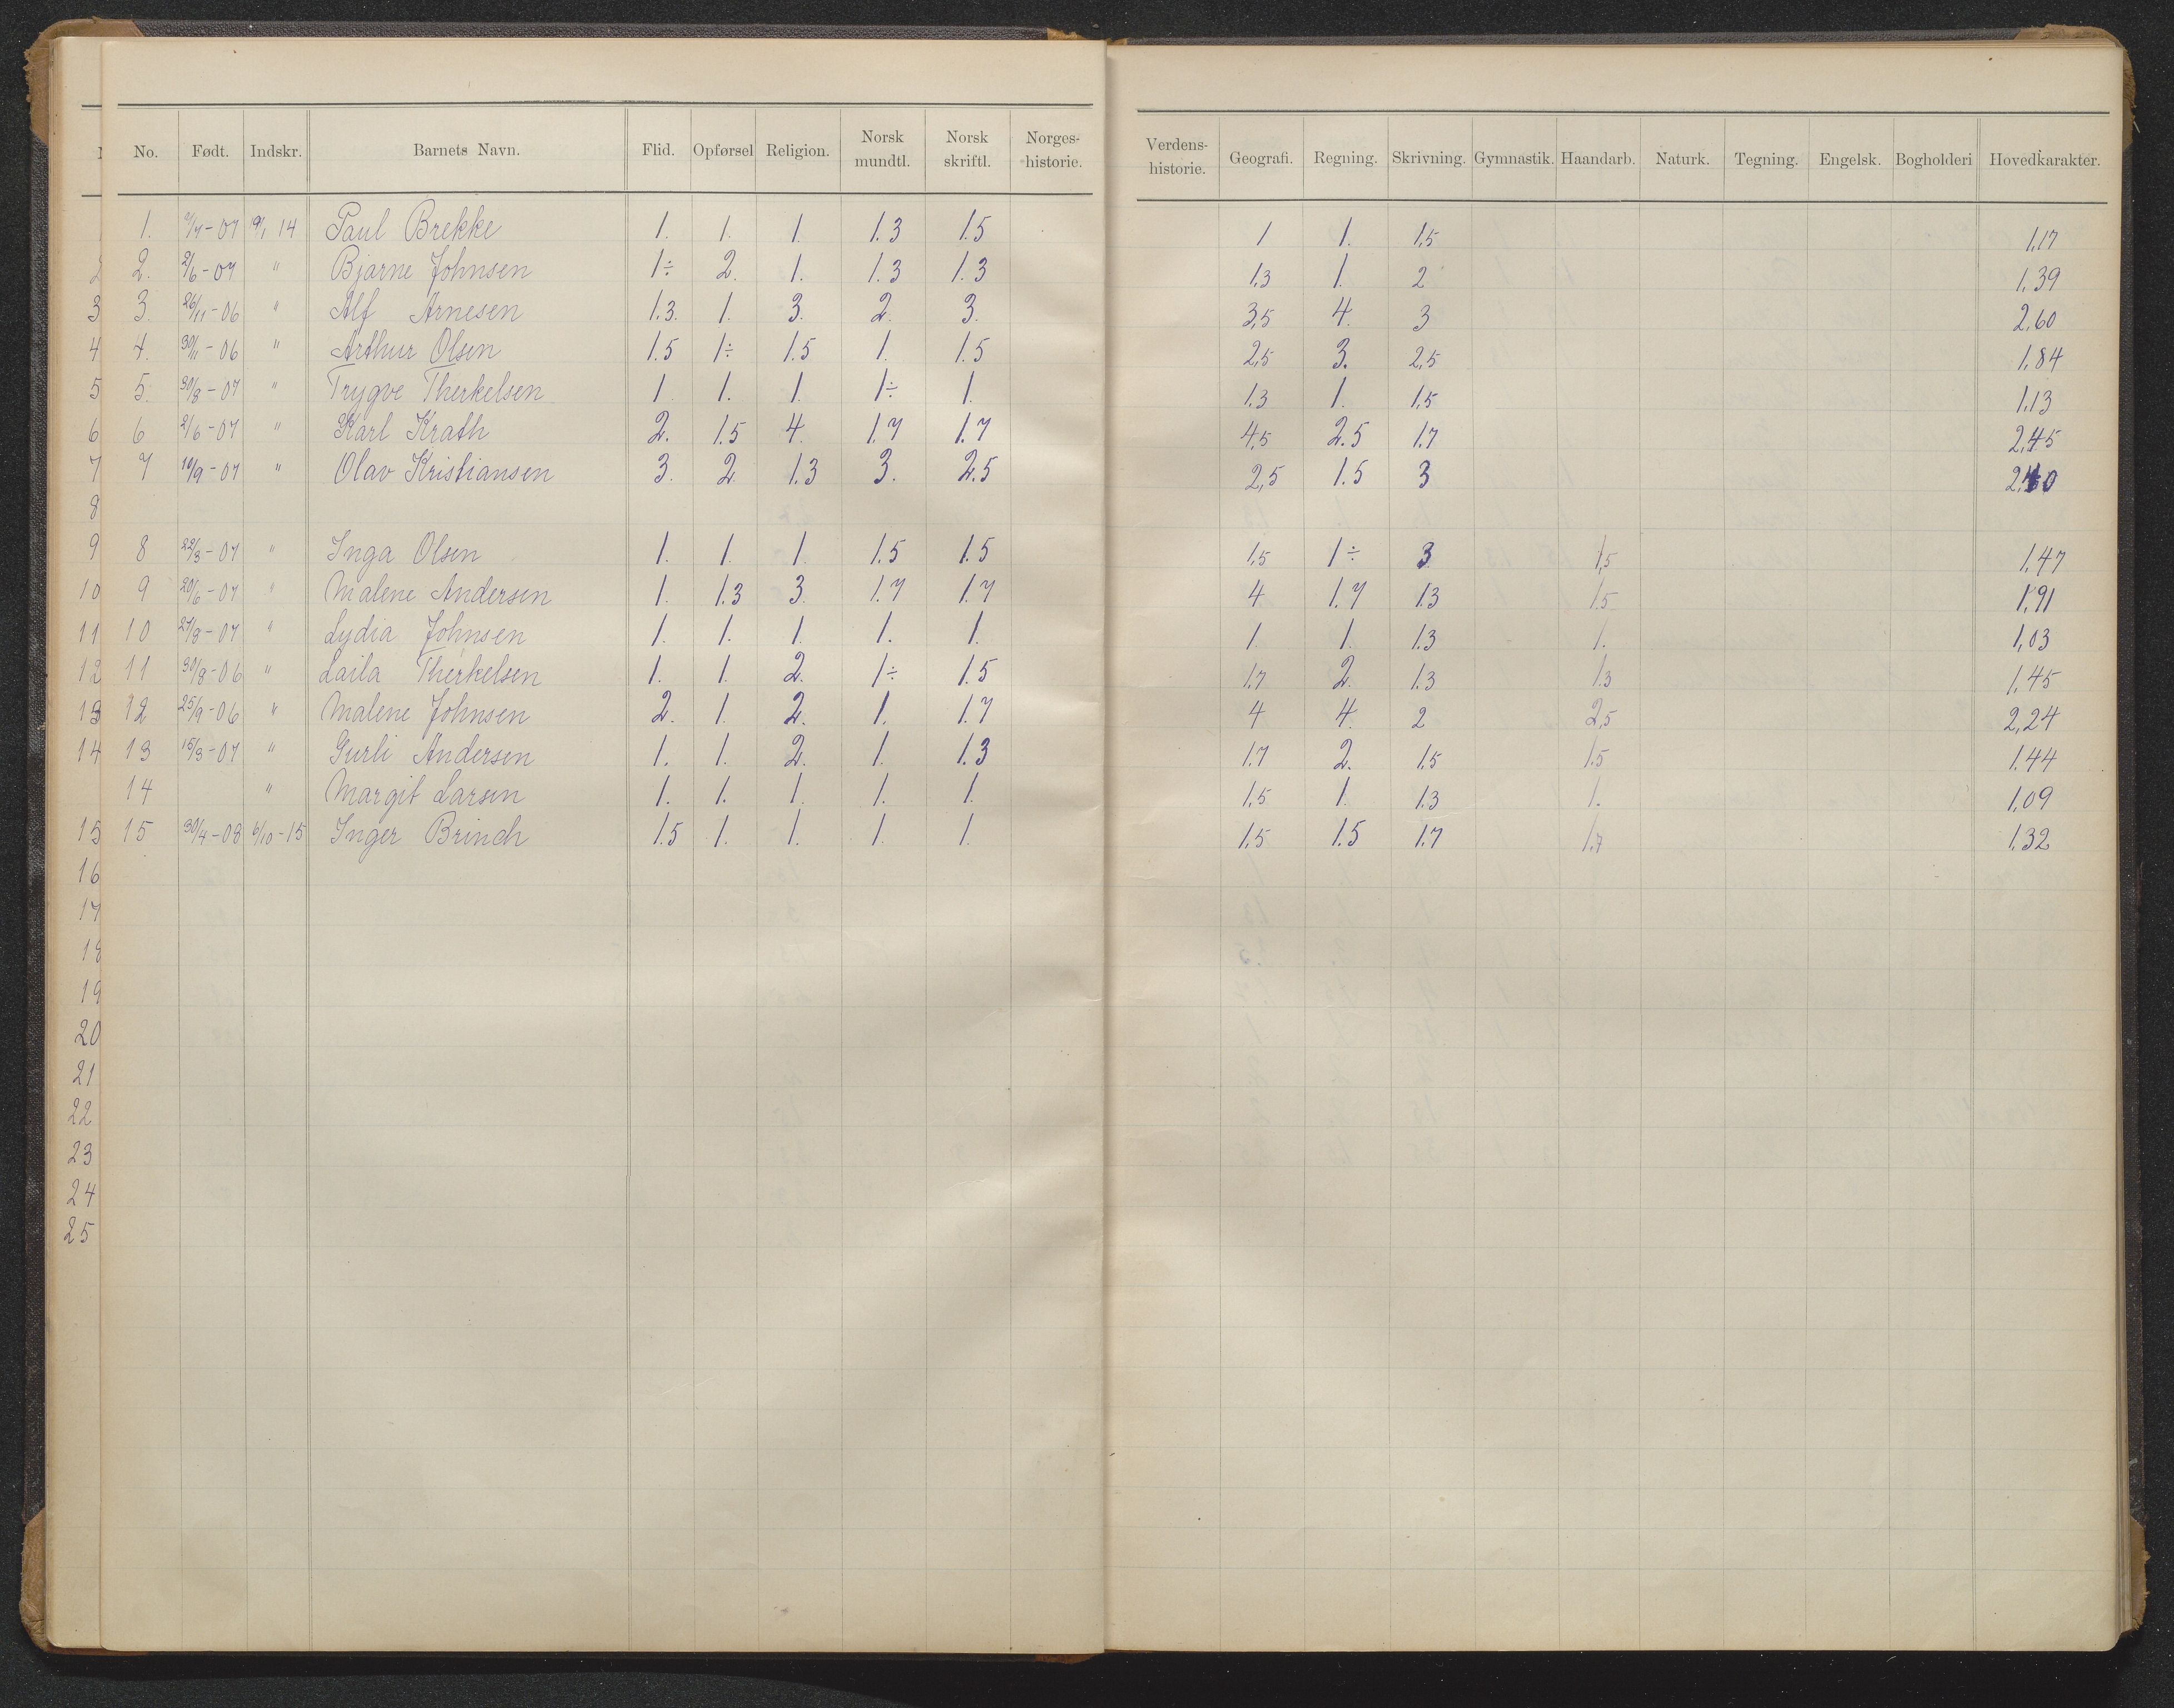 No. Født. Indskr. Barnets Navn. Flid. Opførsel Religion. Norsk mundtl. Norsk skriftl. Norges-historie. Verdens-historie. Geografi. Regning. Skrivning. Gymnastik. Haandarb. Naturk. Tegning. Engelsk. Bogholderi Hovedkarakter.
1. 14 Paul Brekke 1. 1. 1. 1.3 1.5 1 1. 1,5 1,17
2 2. 2/6-07 " Bjarne Johnsen 1÷ 2. 1. 1.3 1.3 1,3 1. 2 1,39
3 3. 26/11-06 " Alf Arnesen 1.3. 1. 3. 2. 3. 3,5 4. 3 2,60
4 4. 30/11-06 " Arthur Olsen 1.5 1÷ 1.5 1. 1.5 2,5 3. 2,5 1,84
5 5. 30/8-07 " Trygve Therkelsen 1 1. 1. 1÷ 1. 1.3 1. 1,5 1,13
6 6 2/6-07 " Karl Krath 2. 1.5 4. 1.7 1.7 4,5 2.5 1.7 2,45
7 7 10/9-07 " Olav Kristiansen 3. 2 1.3 3. 2.5 2,5 1.5 3
8
9 8 22/3-07 " Inga Olsen 1. 1. 1. 1.5 1.5 1,5 1÷ 3 1,5 1,47
10 9 20/6-07 " Malene Andersen 1. 1.3 3. 1.7 1.7 4 1.7 1.3 1.5 1,91
11 10 27/8-07 " Lydia Johnsen 1. 1. 1. 1. 1. 1. 1. 1.3 1. 1,03
12 11 30/8-06 " Laila Therkelsen 1. 1. 2. 1÷ 1.5 1.7 2. 1.3 1.3 1,45
13 12 25/9-06 " Malene Johnsen 2. 1. 2. 1. 1.7 4 4. 2 2,5 2,24
14 13 15/3-07 " Gurli Andersen 1. 1. 2. 1. 1.3 1.7 2. 1.5 1.5 1.44
14 " Margit Larsen 1. 1. 1. 1. 1. 1,5 1. 1.3 1. 1,09
15 15 30/4-08 6/10-15 Inger Brinch 1.5 1. 1. 1. 1. 1.5 1.5 1.7 1.7 1.32
16
17
18
19
20
21
22
23
24
25